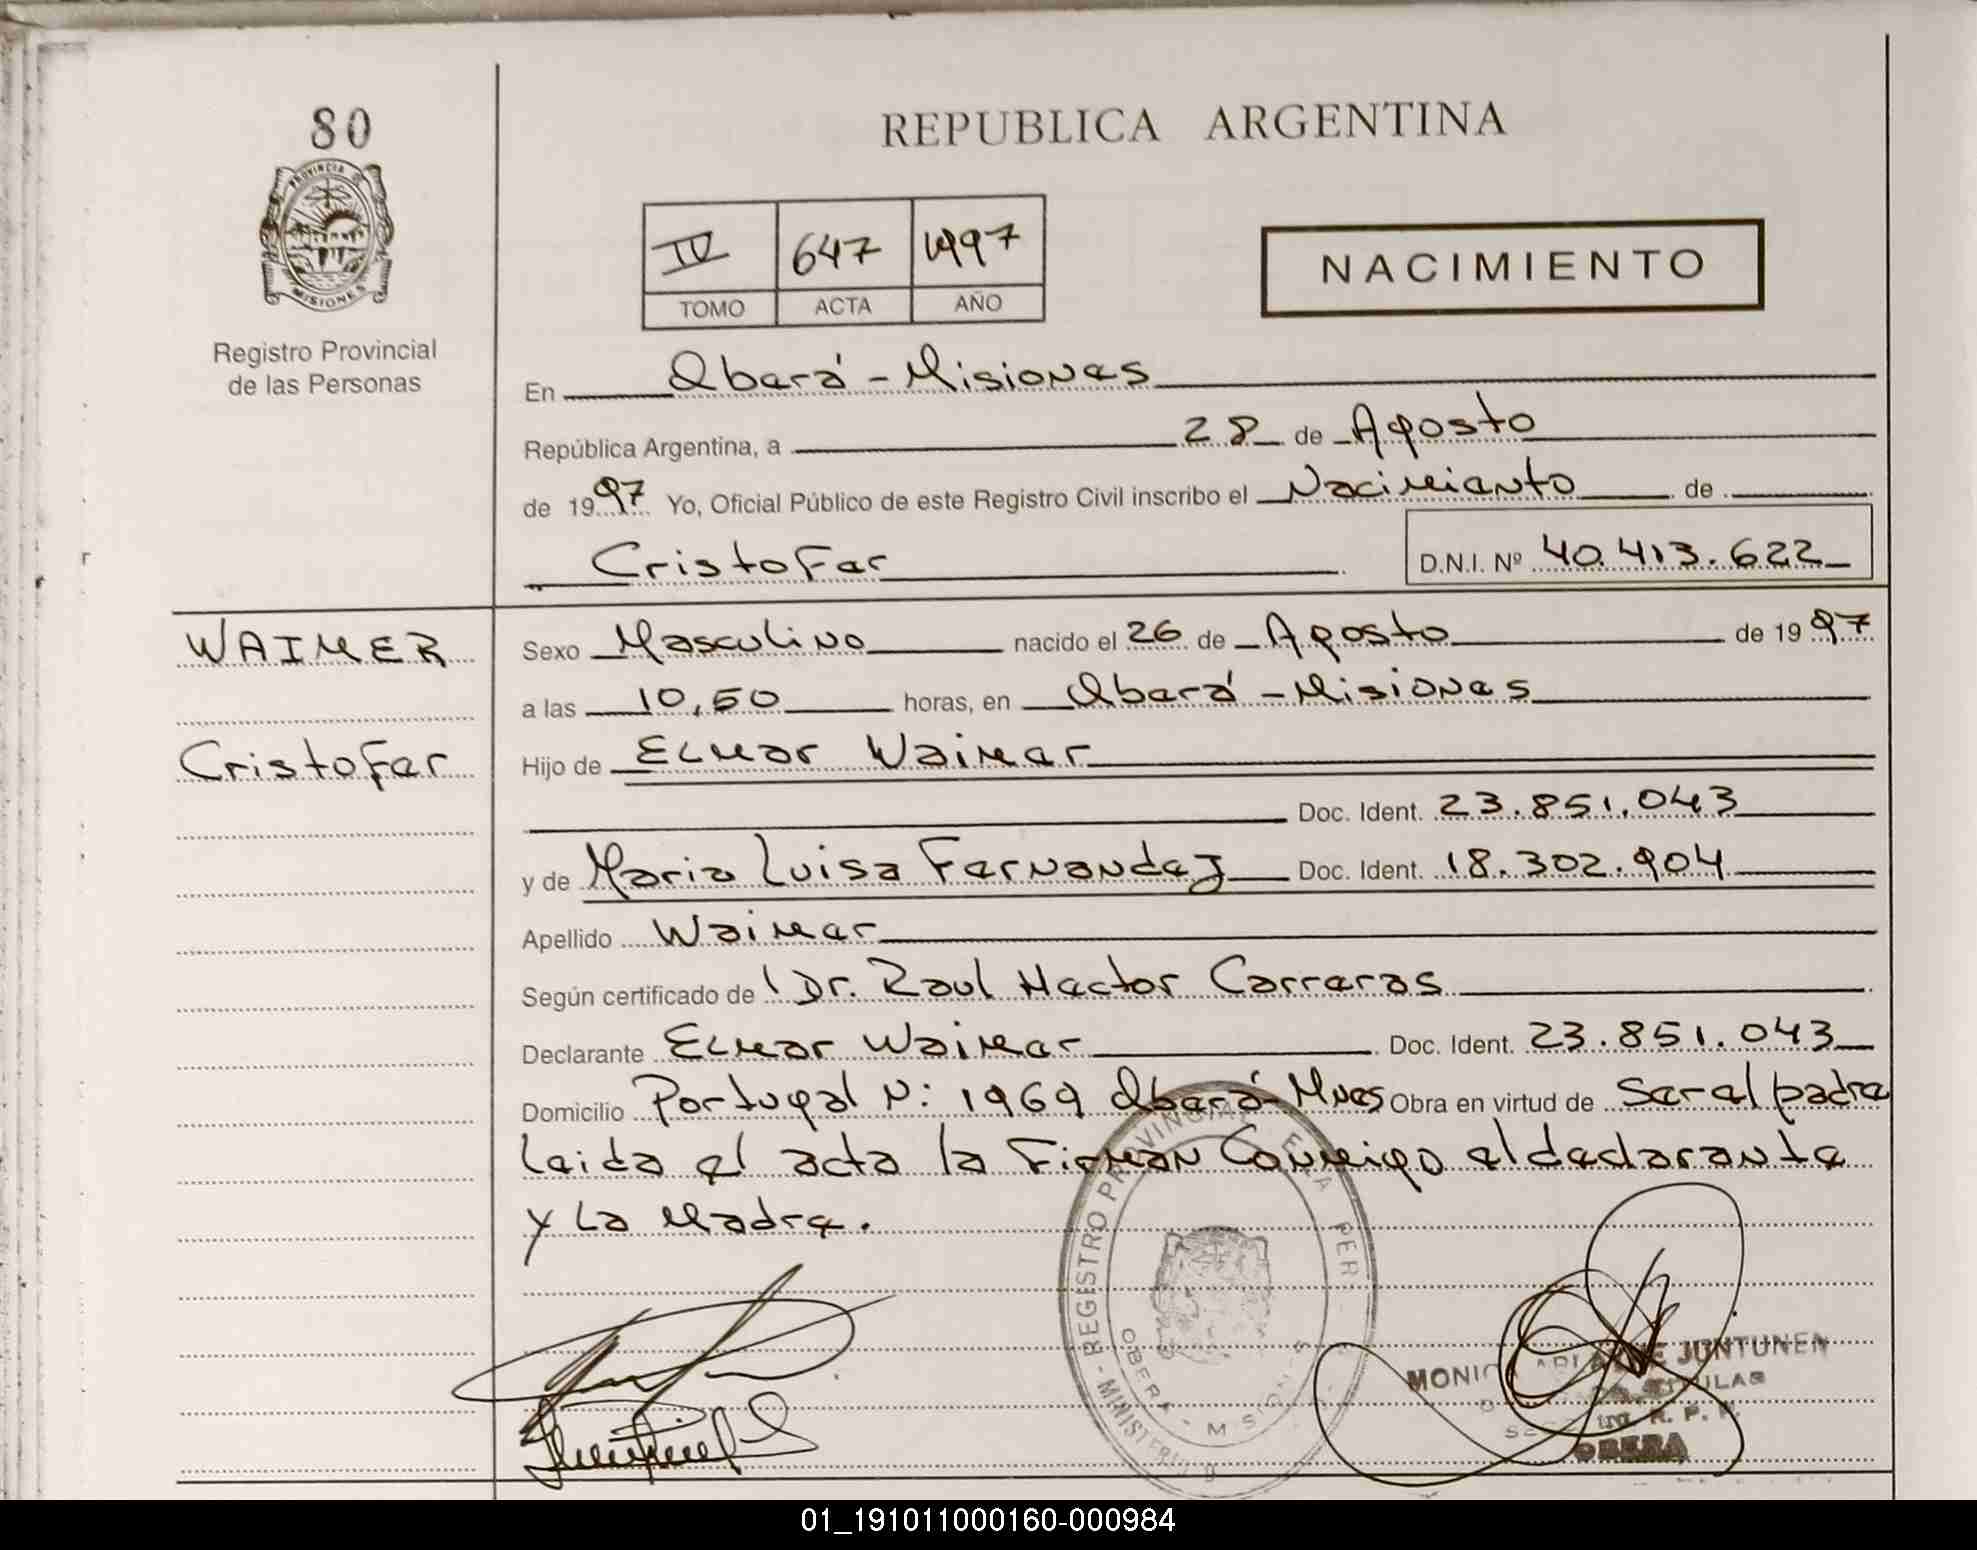 80
PROVINCIA DE
MISIONES
Registro Provincial
de las Personas
REPUBLICA ARGENTINA
IV 647 1997
TOMO ACTA AÑO
NACIMIENTO
En Oberá - Misiones
República Argentina, a 28 de Agosto
de 1997 Yo, Oficial Público de este Registro Civil inscribo el Nacimiento de
Cristofer D.N.I. Nº 40.413.622
WAIMER
Cristofer
Sexo Masculino nacido el 26 de Agosto de 1997
a las 10,50 horas, en Oberá - Misiones
Hijo de Elmor Waimer
Doc. Ident. 23.851.043
y de Maria Luisa Fernandez Doc. Ident. 18.302.904
Apellido Waimer
Según certificado de Dr. Raul Hector Carreras
Declarante Elmor Waimer Doc. Ident. 23.851.043
Domicilio Portugal N: 1969 Oberá - Mnes Obra en virtud de Ser el padre
Leida el acta la Firman Conmigo el declarante
y La Madre.
REGISTRO PROVINCIAL PER
OBERA - MISIONES
MINISTERIO
MONICA JUNTUNEN
OBERA
01_191011000160-000984